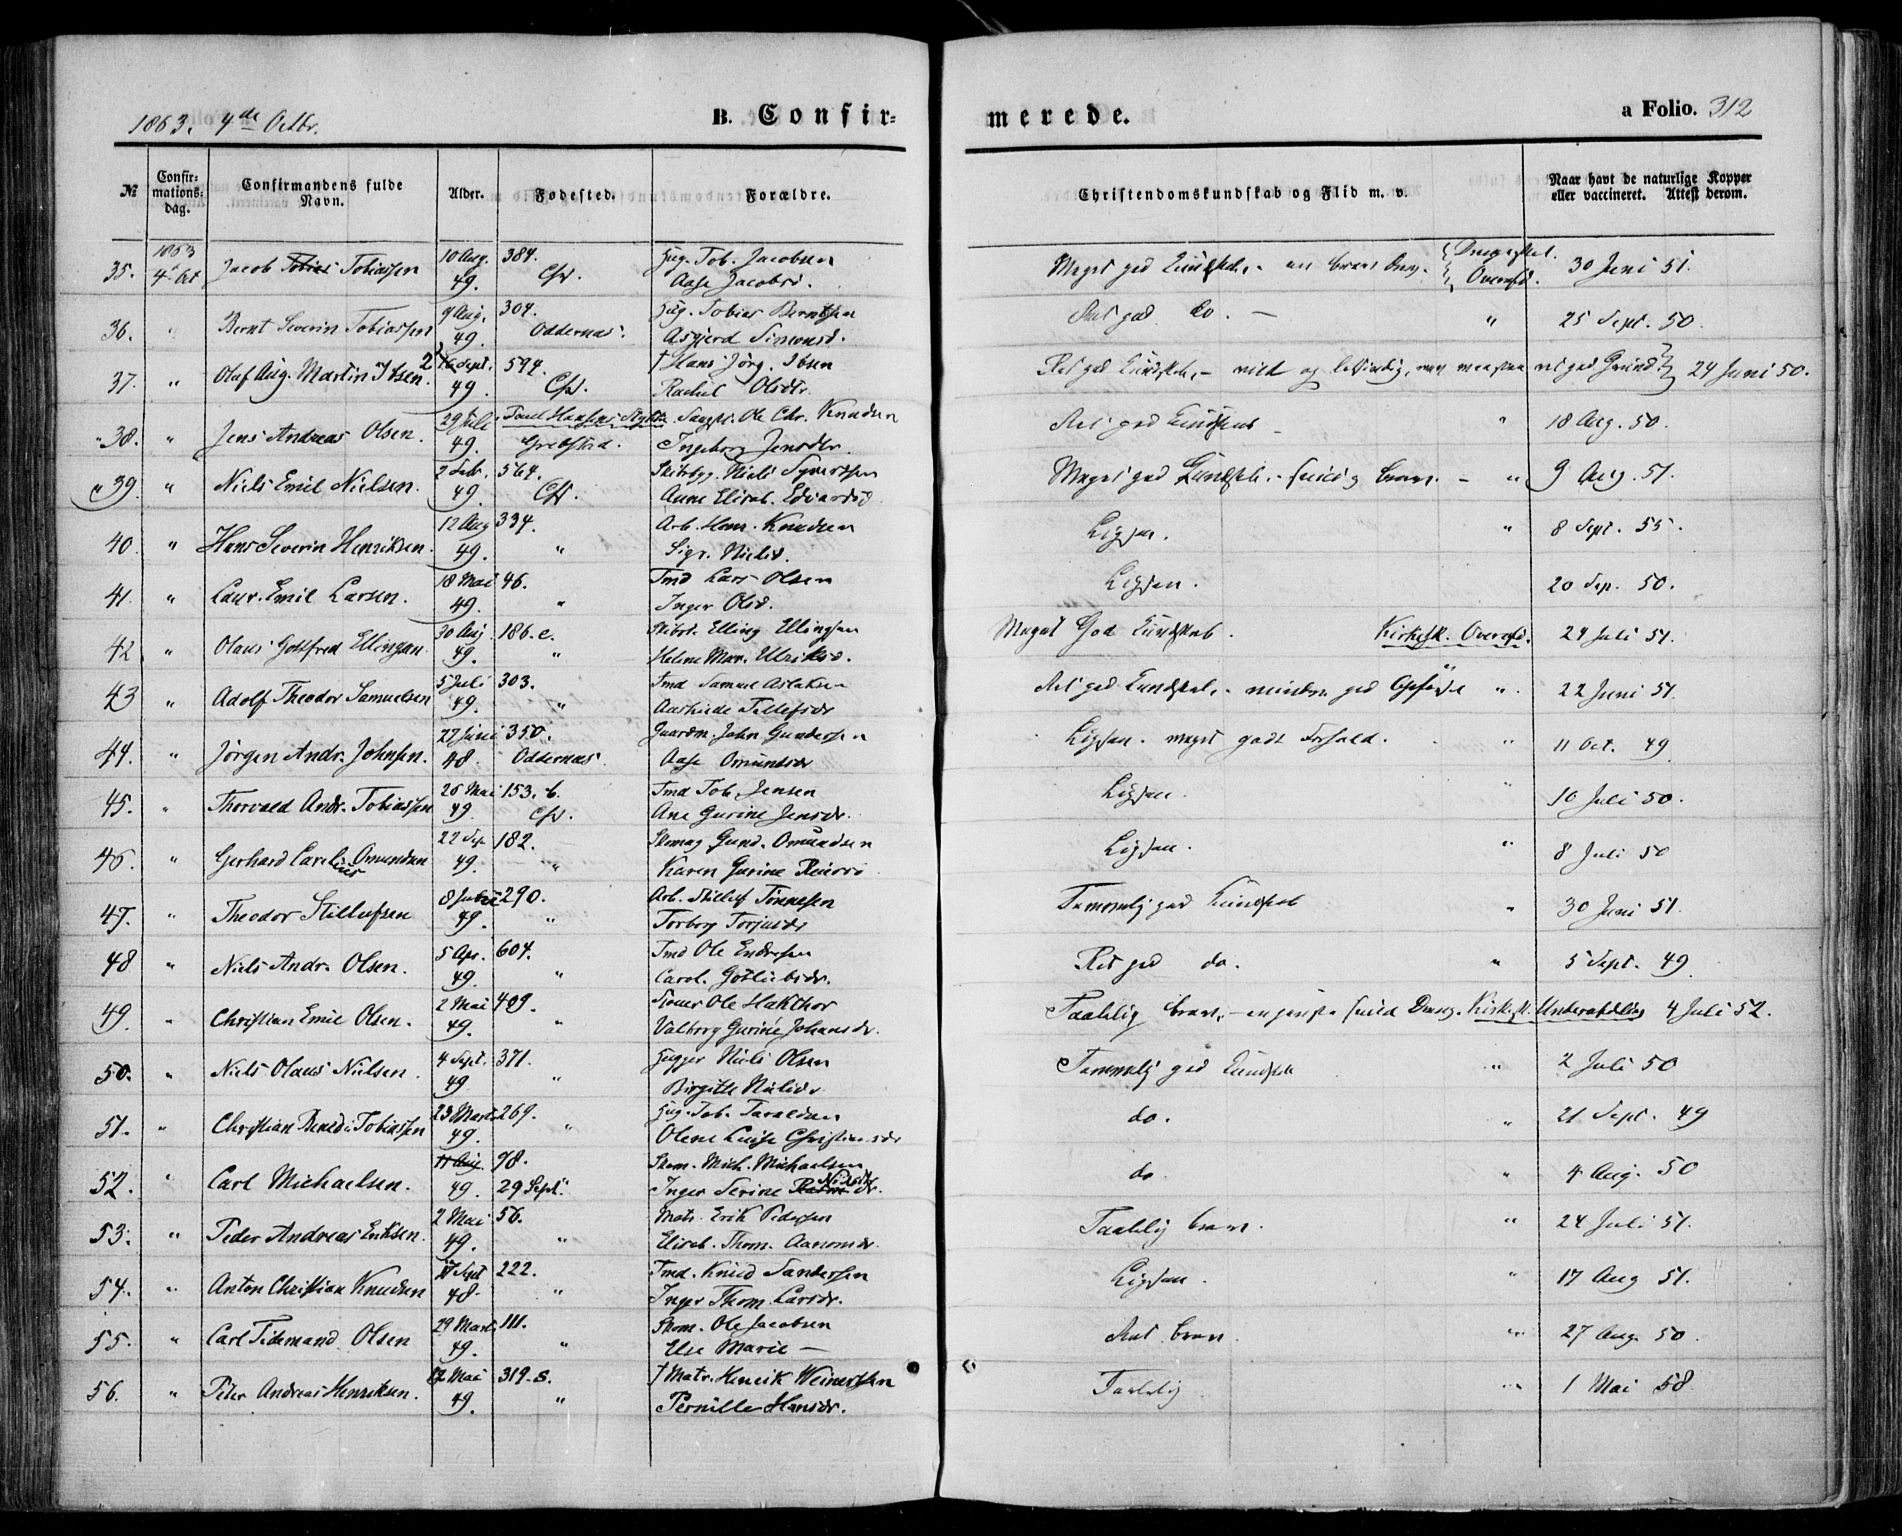 1863. 4de Octbr.
B. Confir-
merede.
a Folio. 312
No
Confir-mations-dag.
Confirmandens fulde Navn.
Alder.
Fødested.
Forældre.
Christendomskundskab og Flid m. v.
Naar havt de naturlige Kopper eller vaccineret. Attest derom.
35. 1863 4 Oct Jacob Tobiassen 10 Aug. 49. 384. Chr. Tob. Jacobsen Meget god Kundskab, 30 Juni 51.
Aase Jacobsd.
36. " Bernt Severin Tobiassen 9 Aug. 49. 304. Oddernæs. Tobias Berntsen Ret god do. — " 25 Sept. 50.
Asgjerd Simonsd.
37. " Olaf Aug. Martin Ibsen. 2 Sept. 49. 594. Chr. † Hans Jörg. Ibsen Ret god Kundskab, 24 Juni 50.
Rachel Olsdr.
38. " Jens Andreas Olsen. 29 Juli 49. Ole Chr. Knudsen Ret god Kundskab — " 18 Aug. 50.
Ingeborg Jensdr.
39. " Niels Emil Nielsen. 2 Feb. 49. 564. Chr. Skibsbyg. Niels Syvertsen Meget god Kundskab. — " 9 Aug. 51.
Anne Elisab. Edvardsd
40. " Hans Severin Henriksen. 12 Aug 49. 334. " Arb. Henr. Knudsen Ligesaa. " 8 Sept. 55.
Sigr. Nielsd.
41. " Laur. Emil Larsen. 18 Mai 49. 46. " Tmd Lars Olsen Ligesaa. 20 Sep. 50.
Inger Olsd.
42. " Olaus Gottfred Ellingsen 30 Aug. 49. 186. c. " Skibst. Elling Ellingsen Meget God Kundskab. Kirkesk. Overafd. 24 Juli 51.
Helene Mar. Ulriksd.
43 " Adolf Theodor Samuelsen 5 Juli 49. 303. " Tmd Samuel Aslaksen Ret god Kundskab, mindre god " 22 Juni 51.
Aashilde Tellefsdr
44. " Jörgen Andr. Johnsen. 27 Juni 48. 350. Oddernæs. Gaardm. John Gundersen Ligesaa. meget godt Forhold. " 11 Oct. 49
Aase Omundsdr
45. " Thorvald Andr. Tobiassen 26 Mai 49. 153. b. Chr. Tmd Tob. Jensen Ligesaa. " 10 Juli 50.
Ane Gurine Jensdr.
46. " Gerhard Carelius Omundsen 22 Sep. 49. 182. " Skomag Gund. Omundsen Ligesaa. " 8 Juli 50
Karen Gurine
47. " Theodor Stillufsen 8 49. 290. " Arb. Stilluf Tönnesen Temmelig god Kundskab " 30 Juni 51.
Torborg Torjusdr
48 " Niels Andr. Olsen. 5 Apr. 49. 604. " Tmd Ole Endresen Ret god do. " 5 Sept. 49
Carol. Gotliebsdr.
49. " Christian Emil Olsen. 2 Mai 49. 409. " Ole Hakthor Taalelig Kirkesk. Underafdeling 4 Juli 52.
Valborg Gurine Johansdr.
50. " Niels Olaus Nielsen. 4 Sept. 49 371. " Niels Olsen Temmelig god Kundskab " 2 Juli 50
Birgitte Nielsdr
51. " Christian Bened. Tobiassen 23 Marts 49. 269. " Tob. Taraldsen do. " 21 Sept. 49
Olene Luise Christiansdr
52. " Carl Michaelsen. 11 Aug. 49. 98. 29 Sept. " Skom. Mich. Michaelsen do. " 4 Aug. 50
Inger Serine
53. " Peder Andreas Eriksen. 2 Mai 49. 56. " Matr. Erik Pedersen Taalelig " 24 Juli 51.
Elisab. Thom. Aanonsdr.
54. " Anton Christian Knudsen Sept 48. 222. " Tmd. Knud Sandersen Ligesaa. " 17 Aug 51.
Inger Thom. Larsdr.
55. " Carl Tidemand Olsen 29 Marts 49. 111. " Skom. Ole Jacobsen Ret " 27 Aug. 50.
Else Marie —
56. " Peter Andreas Henriksen. 12 Mai 49. 319. s. " † Matr. Henrik Weinertsen Taalelig " 1 Mai 58.
Pernille Hansdr.